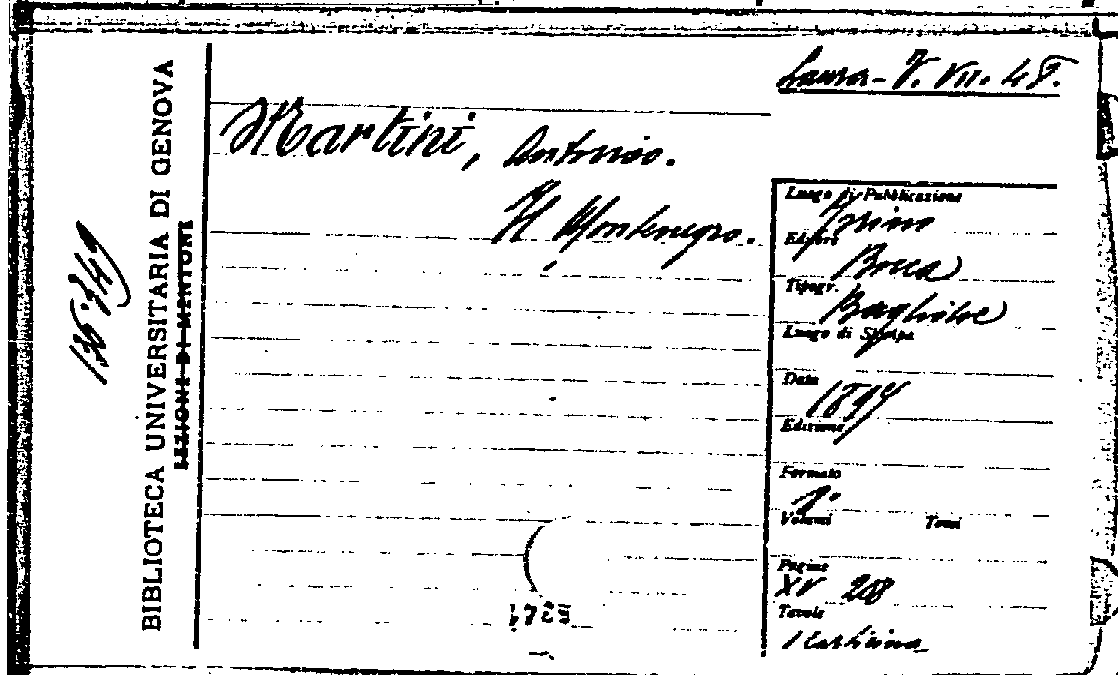 Laura - V. VII. 4 8.
Martini, Antonio.
Il Montenegro.
Luogo di Pubblicazione
Torino
Editore
Bocca
Tipogr.
Baglione
Luogo di Stampa
Data
1894
Edizione
Formato
8°
Volumi Tomi
Pagine
XV 208
Tavole
1 cartina
BIBLIOTECA UNIVERSITARIA DI GENOVA
SEZIONE DI MENTONE